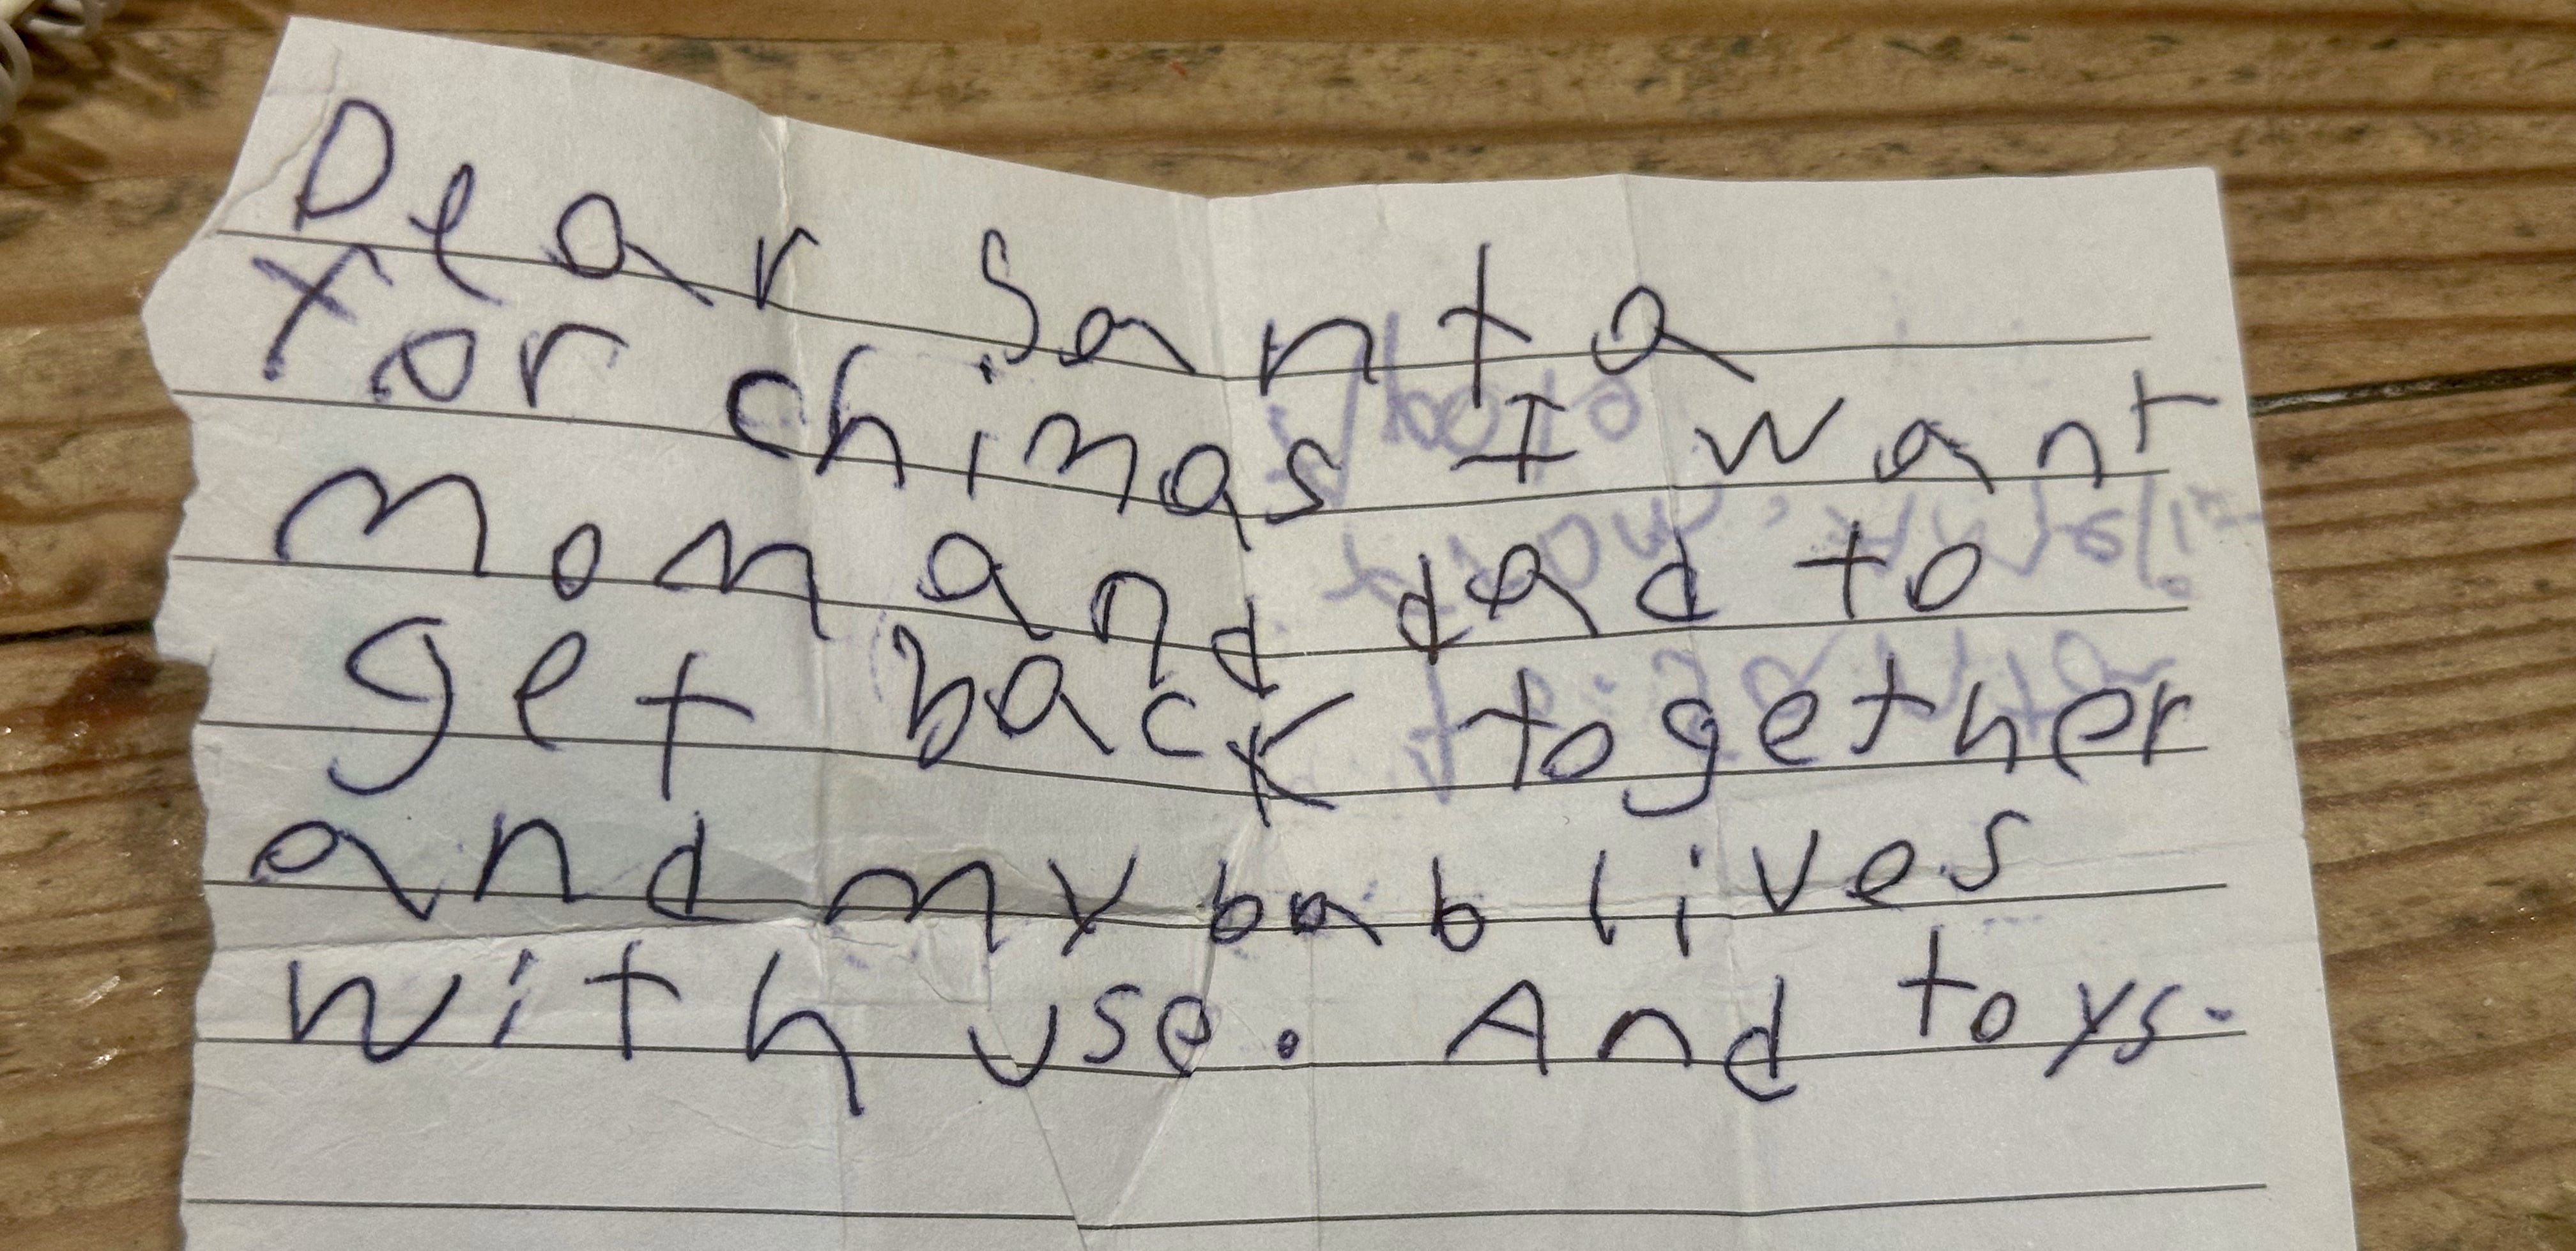 Dear Santa
For chimas I want
Mom and dad to
get back together
and my bab lives
with use. And toys.